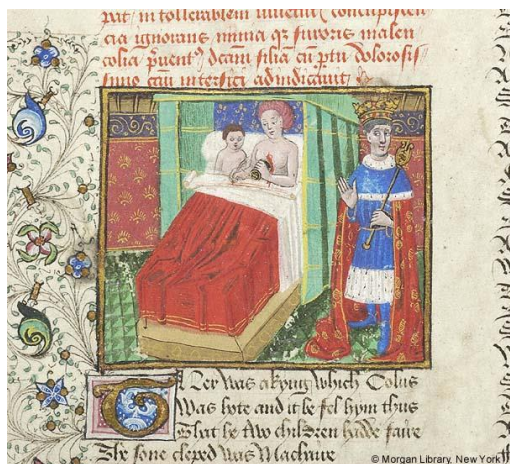 pat in tollerablem iuuetut' concupiscen
cia ignorans nimia q; furoris malen
colia puent' dcam filia cu ptu dolorosis
simo cau interfici adiudicauit
Ther was a kyng which Eolus
Was hote and it be fel hym thus
That he two children hadde faire
The sone cleped was Machaire
© Morgan Library, New York